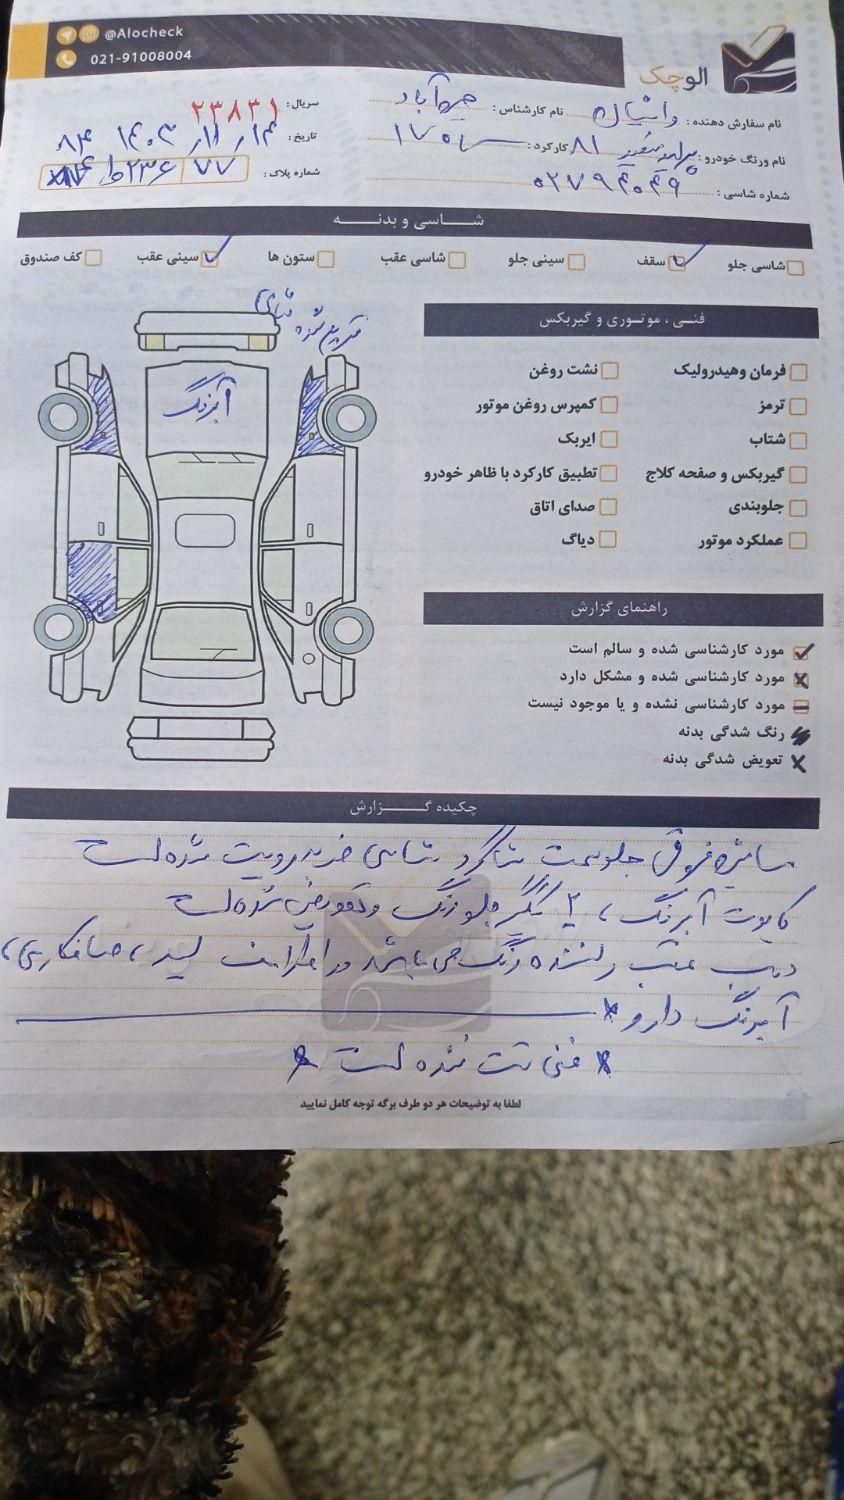 @Alocheck
021-91008004
الوچک
نام سفارش دهنده: دانیال نام کارشناس:
سریال: ۲۳۸۳۱
نام ورنگ خودرو: پراید سفید ۸۱ کارکرد:
تاریخ: ۱۴۰۳/۱۱/۱۴
شماره شاسی:
شماره پلاک: ۷۷
شـــاسی و بدنـــه
شاسی جلو سقف سینی جلو شاسی عقب ستون ها سینی عقب کف صندوق
آبرنگ
فنـی ، موتـوری و گیربکس
فرمان وهیدرولیک نشت روغن
ترمز کمپرس روغن موتور
شتاب ایربک
گیربکس و صفحه کلاج تطبیق کارکرد با ظاهر خودرو
جلوبندی صدای اتاق
عملکرد موتور دیاگ
راهنمای گزارش
مورد کارشناسی شده و سالم است
مورد کارشناسی شده و مشکل دارد
مورد کارشناسی نشده و یا موجود نیست
رنگ شدگی بدنه
تعویض شدگی بدنه
چکیده گـــزارش
جلو سمت شاگرد شاسی ضربه رویت شده است
کاپوت آبرنگ ، ۲ گلگیر جلو رنگ و تعویض شده است
درب عقب راننده رنگ می باشد و اطراف لیسه ، صافکاری ،
آبرنگ دارد
فنی تست نشده است
لطفا به توضیحات هر دو طرف برگه توجه کامل نمایید